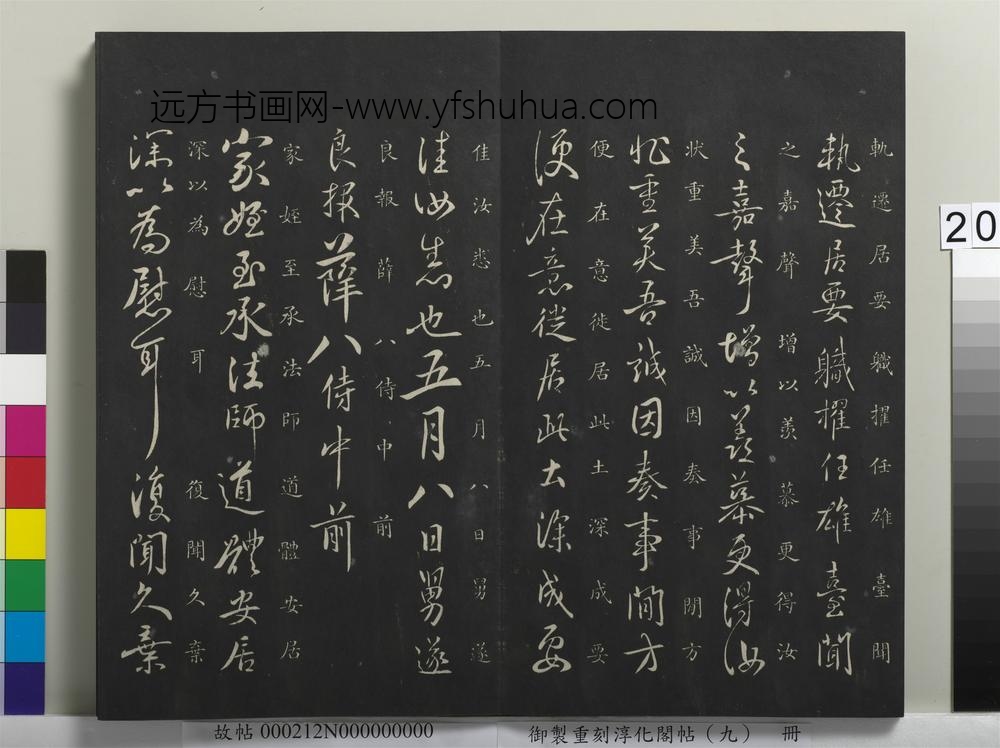 远方书画网-www.yfshuhua.com
軌遷居要軄擢任雄臺聞
軌遷居要軄擢任雄臺聞
之嘉聲增以羨慕更得汝
之嘉聲增以羨慕更得汝
狀重美吾誠因奏事閒方
狀重美吾誠因奏事閒方
便在意徙居此土深成要
便在意徙居此土深成要
佳汝悉也五月八日舅遂
佳汝悉也五月八日舅遂
良報薛八侍中前
良報薛八侍中前
家姪至承法師道體安居
家姪至承法師道體安居
深以為慰耳復聞久棄
深以為慰耳復聞久棄
20
故帖 000212N000000000
御製重刻淳化閣帖（九） 冊